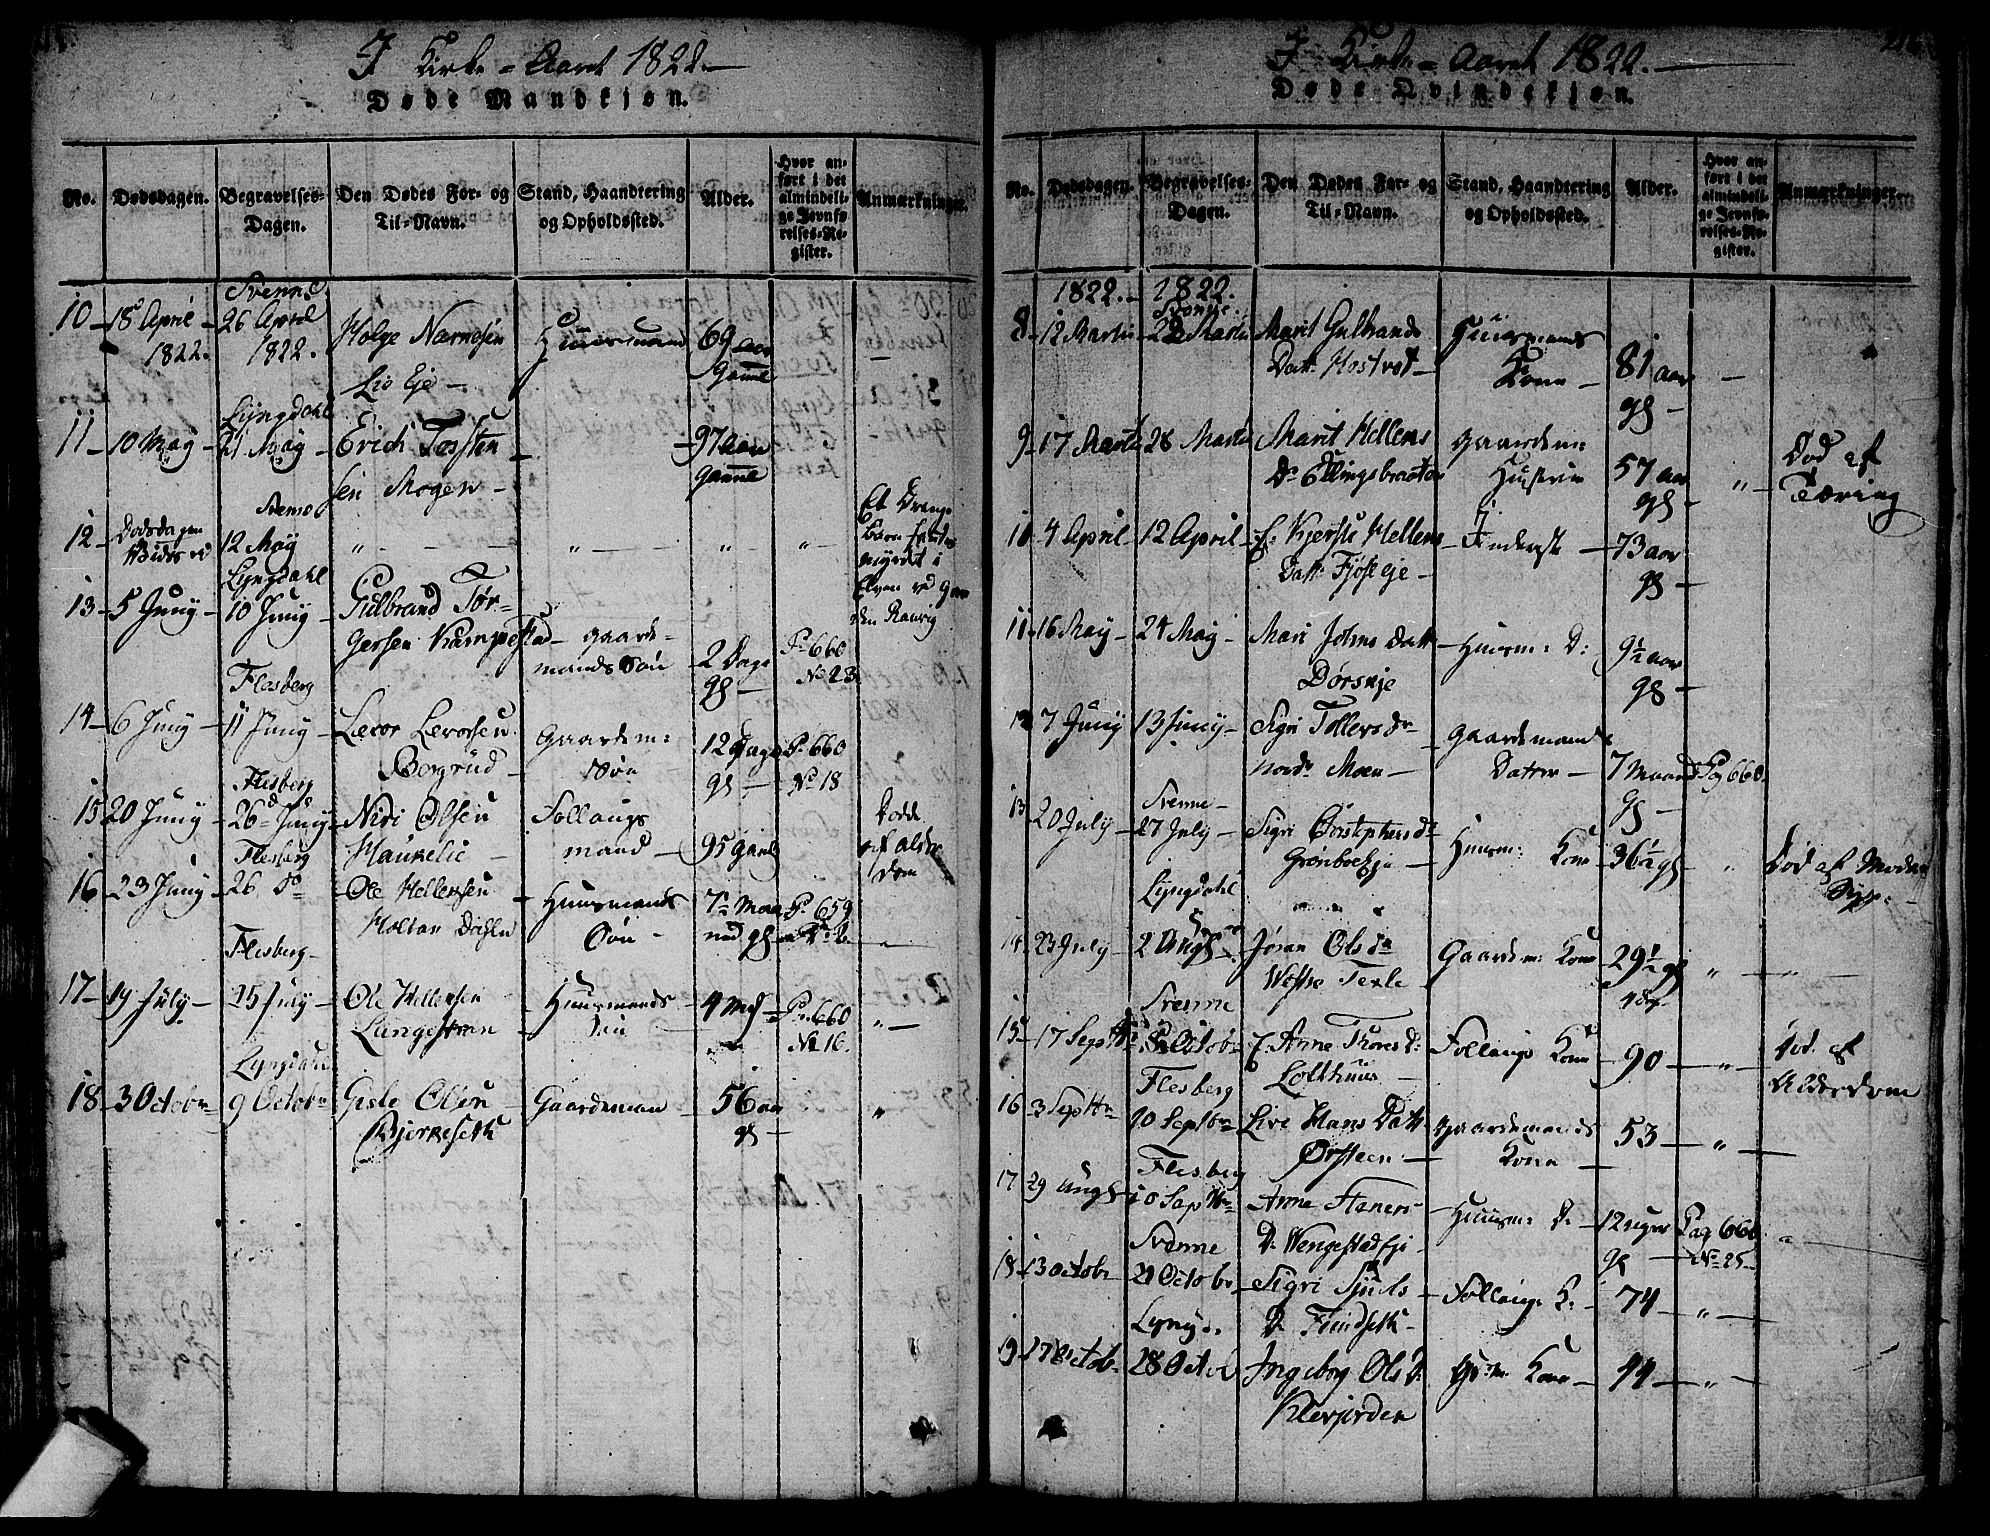 I Kirke-Aaret 1822.
Døde Mandkjøn.
No.
Dødsdagen.
Begravelses-
Dagen.
Den Dødes For- og
Til-Navn.
Stand, Haandtering
og Opholdssted.
Alder.
Hvor an-
ført i det
almindeli-
ge Jevnfø-
relses-Re-
gister.
Anmærkninger.
10
18 April
1822.
Svenne
26 April
1822.
Holge
Lio Eje
Huusmand
69 aar
Gamle
11
10 May
Lyngdahl
21 May
Erich Torsten
sen Mogen
97 aar
Gamle
12
Dødsdagen
Svene
12 May
"
"
"
"
Et Drenge
Barn fandtes
myrdet i
Elven ved Gaar
den Ravig
13
5 Juny
Lyngdahl
10 Juny
Gulbrand Tor-
gersen Kampestad
Gaard-
mands Søn
2 Dage
gl
P. 660
No 23
14
6 Juny
Flesberg
11 Juny
Levor Levorsen
Bergrud
Gaardsm:
Søn
12 Dage
gl
P. 660
No 18
15
20 Juny
Flesberg
26 Juny
Niri Olsen
Haukelie
Follaugs
mand
95 Gaml
Døde
af alder
dom
16
23 Juny
Flesberg
26 Do
Ole Hellersen
Holtan
Huusmands
Søn
7 Maa
ned gl
P. 659
17
19 July
Flesberg
25 July
Ole Hellersen
Langestran
Huusmands
Søn
4 Md
P. 660
No 16.
"
18
3 Octobr
Lyngdahl
9 Octobr
Gisle Olsen
Bjerkeseth
Gaardsman
56 aar
gl
"
I Kirke-Aaret 1822.
Døde Qvindekjøn.
No.
Dødsdagen.
Begravelses-
Dagen.
Den Dødes For- og
Til-Navn.
Stand, Haandtering
og Opholdssted.
Alder.
Hvor an-
ført i det
almindeli-
ge Jevnfø-
relses-Re-
gister.
Anmærkninger.
1822.
1822.
8
12 Martii
Svenne
22 Martii
Marit Gulbrands
Datt. Hostvet
Huusmands
Kone
81 aar
gl
9
17 Martii
28 Martii
Marit Hellens
Dr Ellingsbraaten
Gaardsm:
Hustrue
57 aar
gl
"
Død af
Tæring
10
4 April
12 April
Kjersti Hellens
Datt. Fjøseje
Inderste
73 aar
gl
11
16 May
24 May
Mari Johns Datt
Dørsnje
Huusm: D:
9½ aar
gl
12
7 Juny
13 Juny
Sigri Tollersdr
nordr Moen
Gaardsmands
Datter
7 Maand
gl
Pag 660.
13
20 July
Svenne
27 July
Sigri Christophersdr
Grønboe Eje
Huusm: Kone
36½ gl
"
Død af Moder
Syge.
14
23 July
Lyngdahl
2 Augs
Jøran Olsdr
Westre Texle
Gaardsm: Kone
29½ gl
"
15
17 Septbr
Svenne
Octobr
Anne Thoresd:
Lofthuus
Follaugs Kone
90
"
Død af
Alderdom
16
3 Septbr
Flesberg
10 Septbr
Live Hans Datt
Ørsteen
Gaardsmands
Kone
53
"
17
29 Augs
Flesberg
10 Septbr
Anne Steners
D: Wengestad Eje
Huusm: D:
12 uger
gl
Pag 660
No 25
"
18
13 Octobr
Svenne
21 Octobr
Sigri Sjuls
D: Fundseth
Follaugs K:
74
"
19
17 Octobr
Lyng.
28 Octob
Ingeborg Ols D:
Klevjorden
Huusm. Kone
44
"